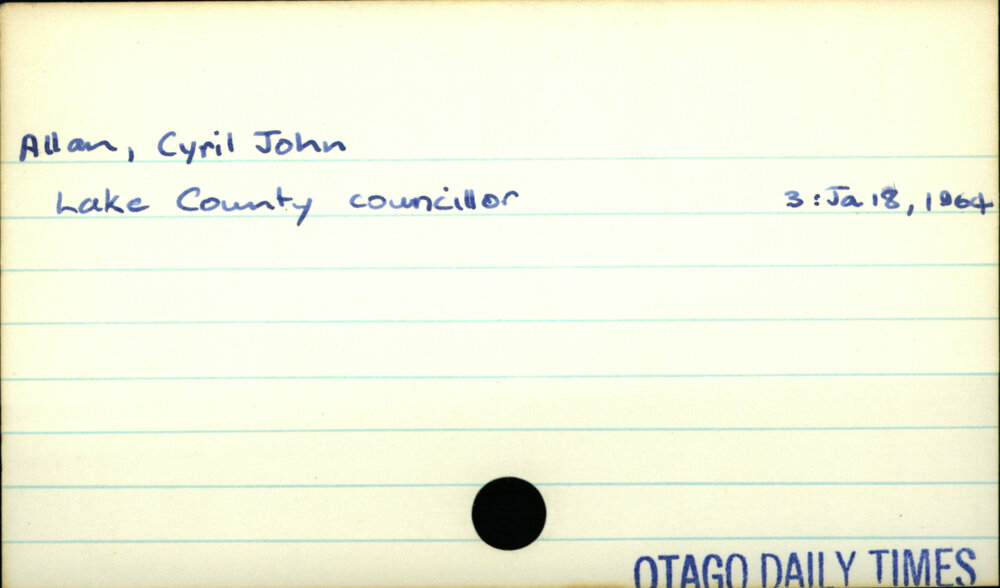 Allan, Cyril John
Lake County councillor 3:Ja 18, 1964
OTAGO DAILY TIMES